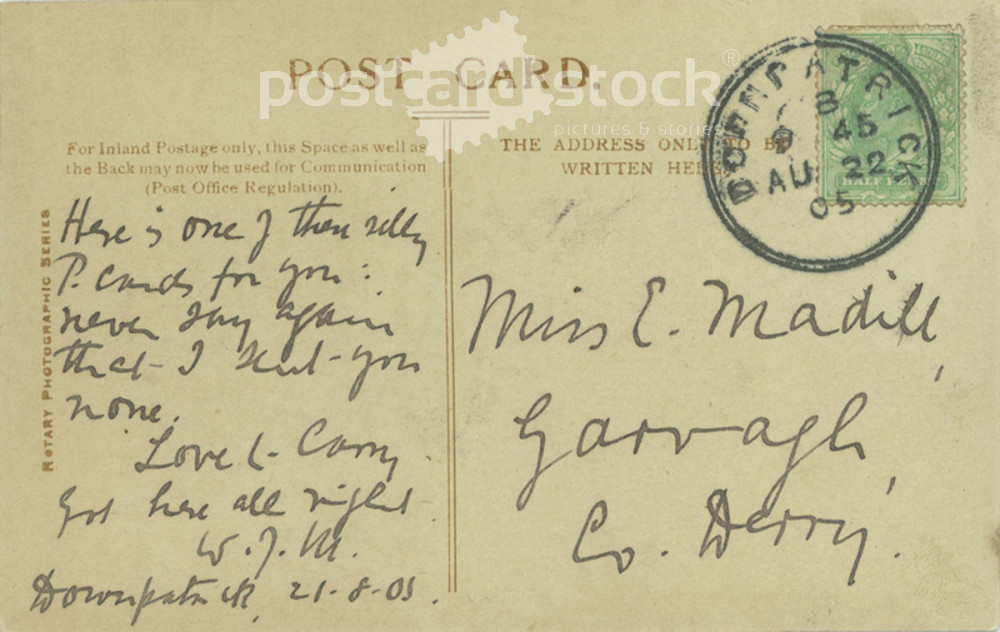 POST CARD.
postcard stock®
pictures & stories
For Inland Postage only, this Space as well as
the Back may now be used for Communication
(Post Office Regulation).
THE ADDRESS ONLY TO BE
WRITTEN HERE
DOWNPATRICK
8 45
AU 22
05
HALF PENNY
ROTARY PHOTOGRAPHIC SERIES
Here is one of these silly
P. cards for you:
never say again
that I sent you
none.
Love to Carry
Got here all right
W. J. M.
Downpatrick, 21-8-05.
Miss E. Madill,
Garvagh,
Co. Derry.